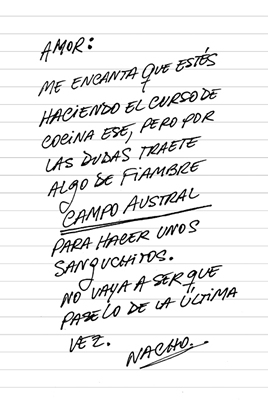 AMOR:
ME ENCANTA QUE ESTÉS
HACIENDO EL CURSO DE
COCINA ESE, PERO POR
LAS DUDAS TRAETE
ALGO DE FIAMBRE
CAMPO AUSTRAL
PARA HACER UNOS
SANGUCHITOS.
NO VAYA A SER QUE
PASE LO DE LA ÚLTIMA
VEZ.
NACHO.